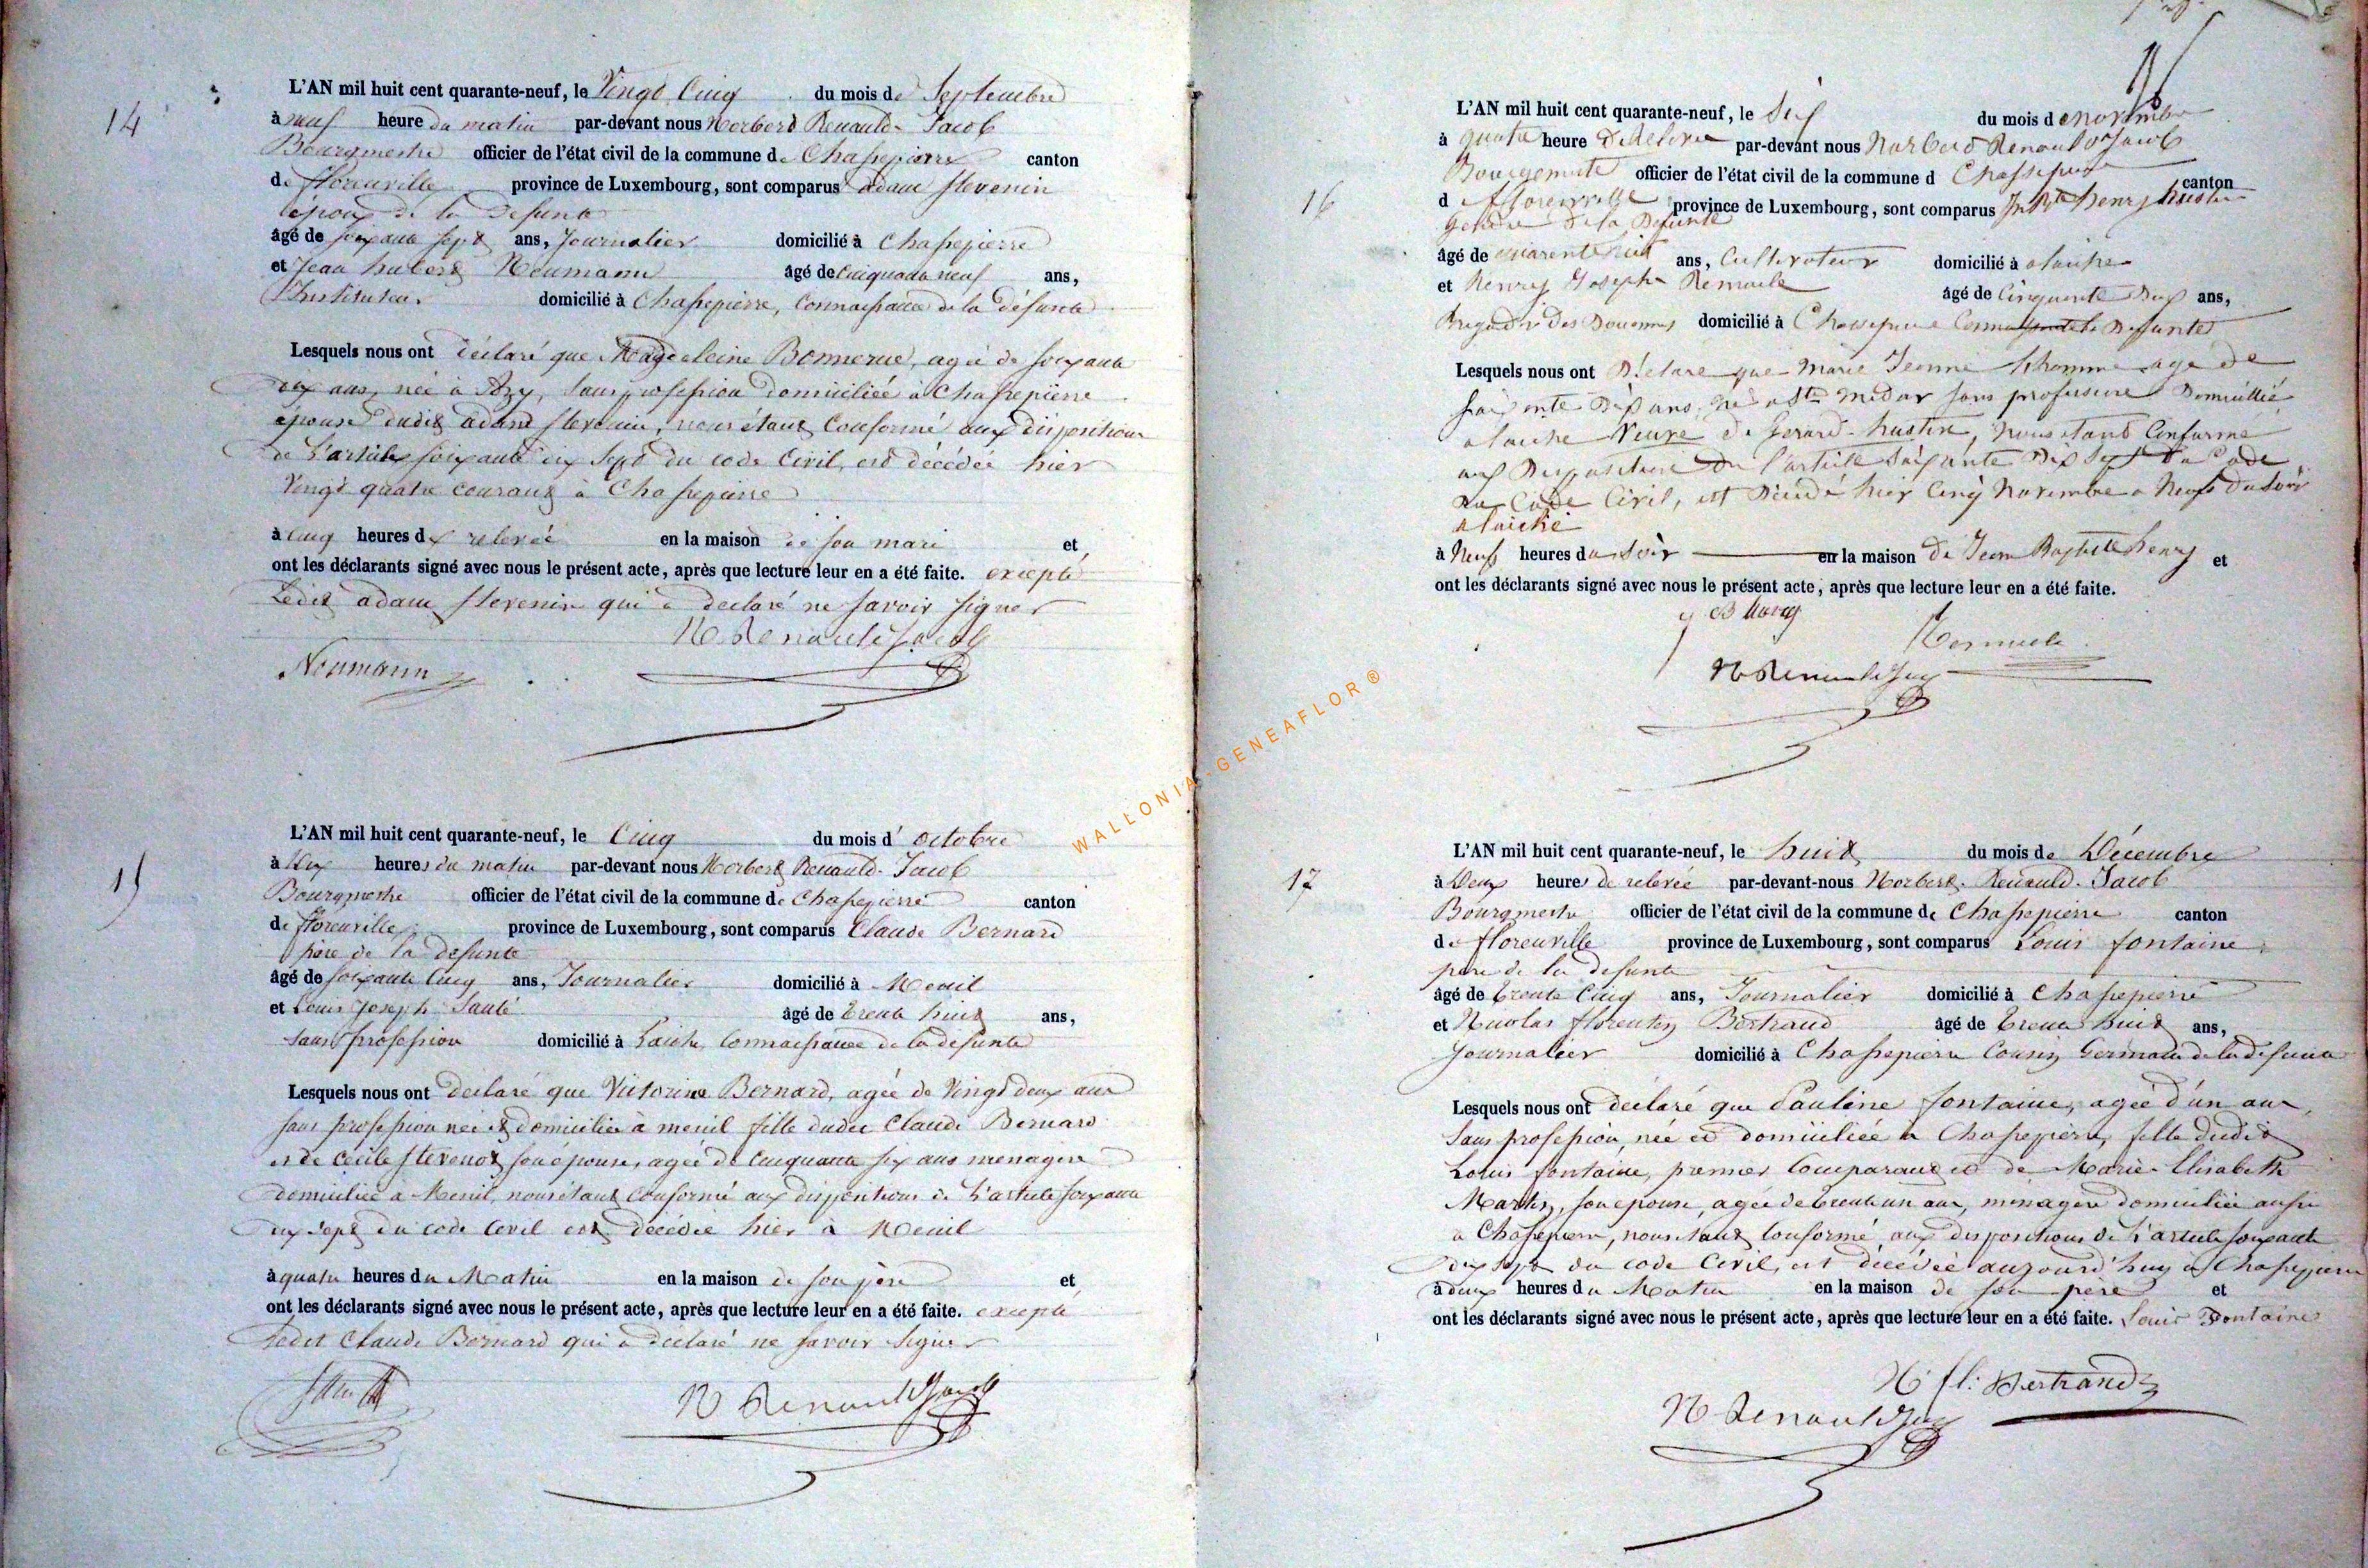 14
L'AN mil huit cent quarante-neuf, le Vingt Cinq du mois de Septembre
à neuf heure du matin par-devant nous Norbert Renauld-Jacob
Bourgmestre officier de l'état civil de la commune de Chassepierre canton
de florenville province de Luxembourg, sont comparus adam stevenin
époux de la defunte
âgé de soixante sept ans, Journalier domicilié à Chassepierre
et Jean hubert Neumann âgé de Cinquante neuf ans,
Instituteur domicilié à Chassepierre, Connaissance de la défunte
Lesquels nous ont déclaré que Magdeleine Bonnerue, agée de soixante
dix ans, née à Izy, Sans profession domiciliée à Chassepierre
épouse dudit adam stevenin, nous étant Conformé aux dispositions
de L'article soixante dix Sept du code Civil, est décédée hier
Vingt quatre courant à Chassepierre
à cinq heures de relevée en la maison de son mari et
ont les déclarants signé avec nous le présent acte, après que lecture leur en a été faite. excepté
Ledit adam stevenin qui a declaré ne savoir signer
N Renauld Jacob
Neumann
15
L'AN mil huit cent quarante-neuf, le Cinq du mois d' octobre
à dix heures du matin par-devant nous Norbert Renauld-Jacob
Bourgmestre officier de l'état civil de la commune de Chassepierre canton
de florenville province de Luxembourg, sont comparus Claude Bernard
père de la defunte
âgé de soixante Cinq ans, Journalier domicilié à Menil
et Louis Joseph Santé âgé de trente huit ans,
sans profession domicilié à Laiche, Connaissance de la defunte
Lesquels nous ont declaré que Victorine Bernard, agée de Vingt deux ans
sans profession née et domiciliée à menil fille dudit Claude Bernard
et de Cécile stevenot son épouse, agée de Cinquante six ans menagere
domiciliée à Menil, nous étant Conformé aux dispositions de L'article soixante
dix sept du code Civil est décédée hier à Menil
à quatre heures du Matin en la maison de son père et
ont les déclarants signé avec nous le présent acte, après que lecture leur en a été faite. excepté
Ledit Claude Bernard qui a declaré ne savoir signer
N Renauld Jacob
WALLONIA-GENEAFLOR ®
16
L'AN mil huit cent quarante-neuf, le Six du mois de novembre
à quatre heure de Relevée par-devant nous Norbert Renauld Jacob
Bourgemestre officier de l'état civil de la commune d Chassepierre canton
d florenville province de Luxembourg, sont comparus Jn Bte henry hustin
gendre de la Defunte
âgé de quarente huit ans, Cultivateur domicilié à alaiche
et Henry Joseph Remacle âgé de Cinquente Deux ans,
Brigadier des Douannes domicilié à Chassepierre Connaissante la Defunte
Lesquels nous ont Déclare que Marie Jeanne thomme age de
soixente Dix ans, né a Ste medar sans professione Domicillié
alaiche Veuve de Gerard hustin, nous étant Conforme
aux Disposition du l'article soixante Dix Sept du Code
du Code Civil, est Décédé hier Cinq Novembre a Neufs Du soir
a laiche
à Neufs heures du soir en la maison De Jean Baptiste henry et
ont les déclarants signé avec nous le présent acte, après que lecture leur en a été faite.
J B henry
Remacle
N Renauld Jacob
17
L'AN mil huit cent quarante-neuf, le huit du mois de Décembre
à Deux heures de relevée par-devant-nous Norbert Renauld-Jacob
Bourgmestre officier de l'état civil de la commune de Chassepierre canton
de florenville province de Luxembourg, sont comparus Louis fontaine
père de la defunte
âgé de trente Cinq ans, Journalier domicilié à Chassepierre
et Nicolas florentin Bertrand âgé de trente huit ans,
Journalier domicilié à Chassepierre Cousin Germain de la defunte
Lesquels nous ont déclaré que Pauline fontaine, agée d'un an,
Sans profession, née et domiciliée à Chassepierre, fille dudit
Louis fontaine, premier Comparant et de Marie-Elisabeth
Martin, son épouse, agée de trente un ans, menagere domiciliée aussi
à Chassepierre, nous étant conformé aux dispositions de L'article soixante
dix sept du code Civil, est décédée aujourd'huy à Chassepierre
à deux heures du Matin en la maison de son père et
ont les déclarants signé avec nous le présent acte, après que lecture leur en a été faite. Louis Fontaine
N fl: Bertrand
N Renauld Jacob